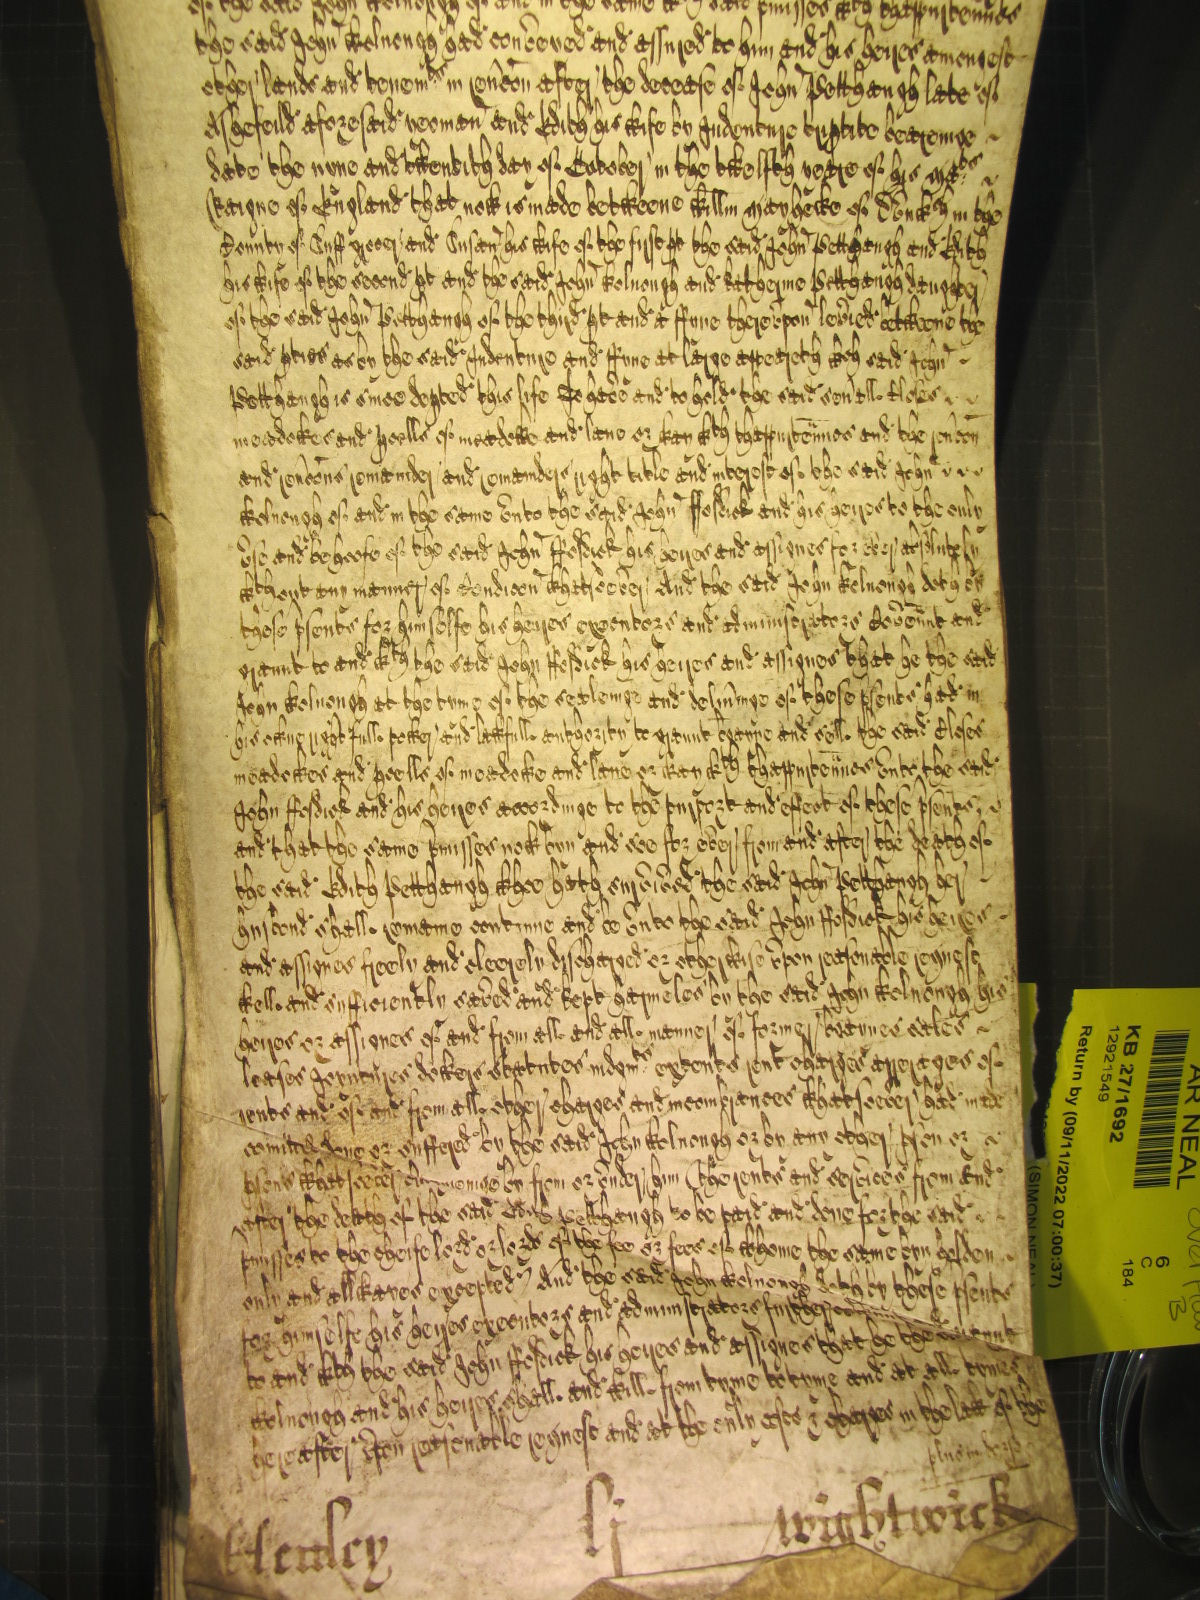 of the said John Kelnough of and in the same
the said John Kelnough had conveyed and assured to him and his heyres amongest
other lands and tenemts in rencon after the decease of John Petthaugh late of
Ashefeild aforesaid yeoman and Edith his wife by Indenture tryptite bearinge
date the nyne and twentith day of October in the twelfth yeare of his Mats
Raigne of England that now is made betweene Willm Mayhewe of in the
County of Suff and Susan his wife of the first pt the said John Petthaugh and Edith
his wife of the second pt and the said John Kelnough and Katherine Petthaugh daughter
of the said John Petthaugh of the third pt and a ffyne thereupon levied betweene the
said pties as by the said Indenture and ffyne at large appeareth wch said John
Petthaugh is since depted this life To have and to hold the said sevall Closes
meadowes and pcells of meadowe and lane or way wth thapprtennces and the rencon
and rencons remainder and remainders right title and interest of the said John
Kelnough of and in the same unto the said John ffosdick and his heyres to the only
use and behoofe of the said John ffosdick his heyres and assignes for ever absolutely
wthout any manner of Condicon whatsoever And the said John Kelnough doth by
these psents for himselfe his heyres executors and administrators Covennt and
graunt to and wth the said John ffosdick his heyres and assignes that he the said
John Kelnough at the tyme of the sealeinge and delivinge of these psents had in
his owne right full power and lawfull authority to graunt and sell the said Closes
meadowes and pcells of meadowe and lane or way wth thapprtennces unto the said
John ffosdick and his heyres accordinge to the purport and effect of these psents
and that the same pmisses now bee and soe for ever from and after the death of
the said Edith Petthaugh whoe hath survived the said John Petthaugh her
husbond shall remaine contynue and be unto the said John ffosdick his heyres
and assignes freely and cleerely discharged or otherwise upon reasonable request
well and sufficiently saved and kept harmeles by the said John Kelnough his
heyres or assignes of and from all and all manner of former bargaynes sales
leases Joyntures dowers statutes iudgmts extents rent charges arrerages of
rents and of and from all other charges and incombrances whatsoever had made
comitted done or suffered by the said John Kelnough or by any other pson or
psons whatsoever by from or under him (the rents and services from and
after the death of the said Edith Petthaugh to be paid and done for the said
pmisses to the cheife lord or lords of the fee or fees of whome the same bee holden
only and allwayes excepted) And the said John Kelnough doth by these psents
for himselfe his heyres executors and administrators further covennt
to and wth the said John ffosdick his heyres and assignes that he the said
Kelnough and his heyres shall and will from tyme to tyme and at all tymes
hereafter upon reasonable request and at the only costs & charges in the law of the
plus in dorso
Henley lj Wightwick
AR NEAL
KB 27/1692
12921549
Return by (09/11/2022 07:00:37)
(SIMON NEAL
6
C
184